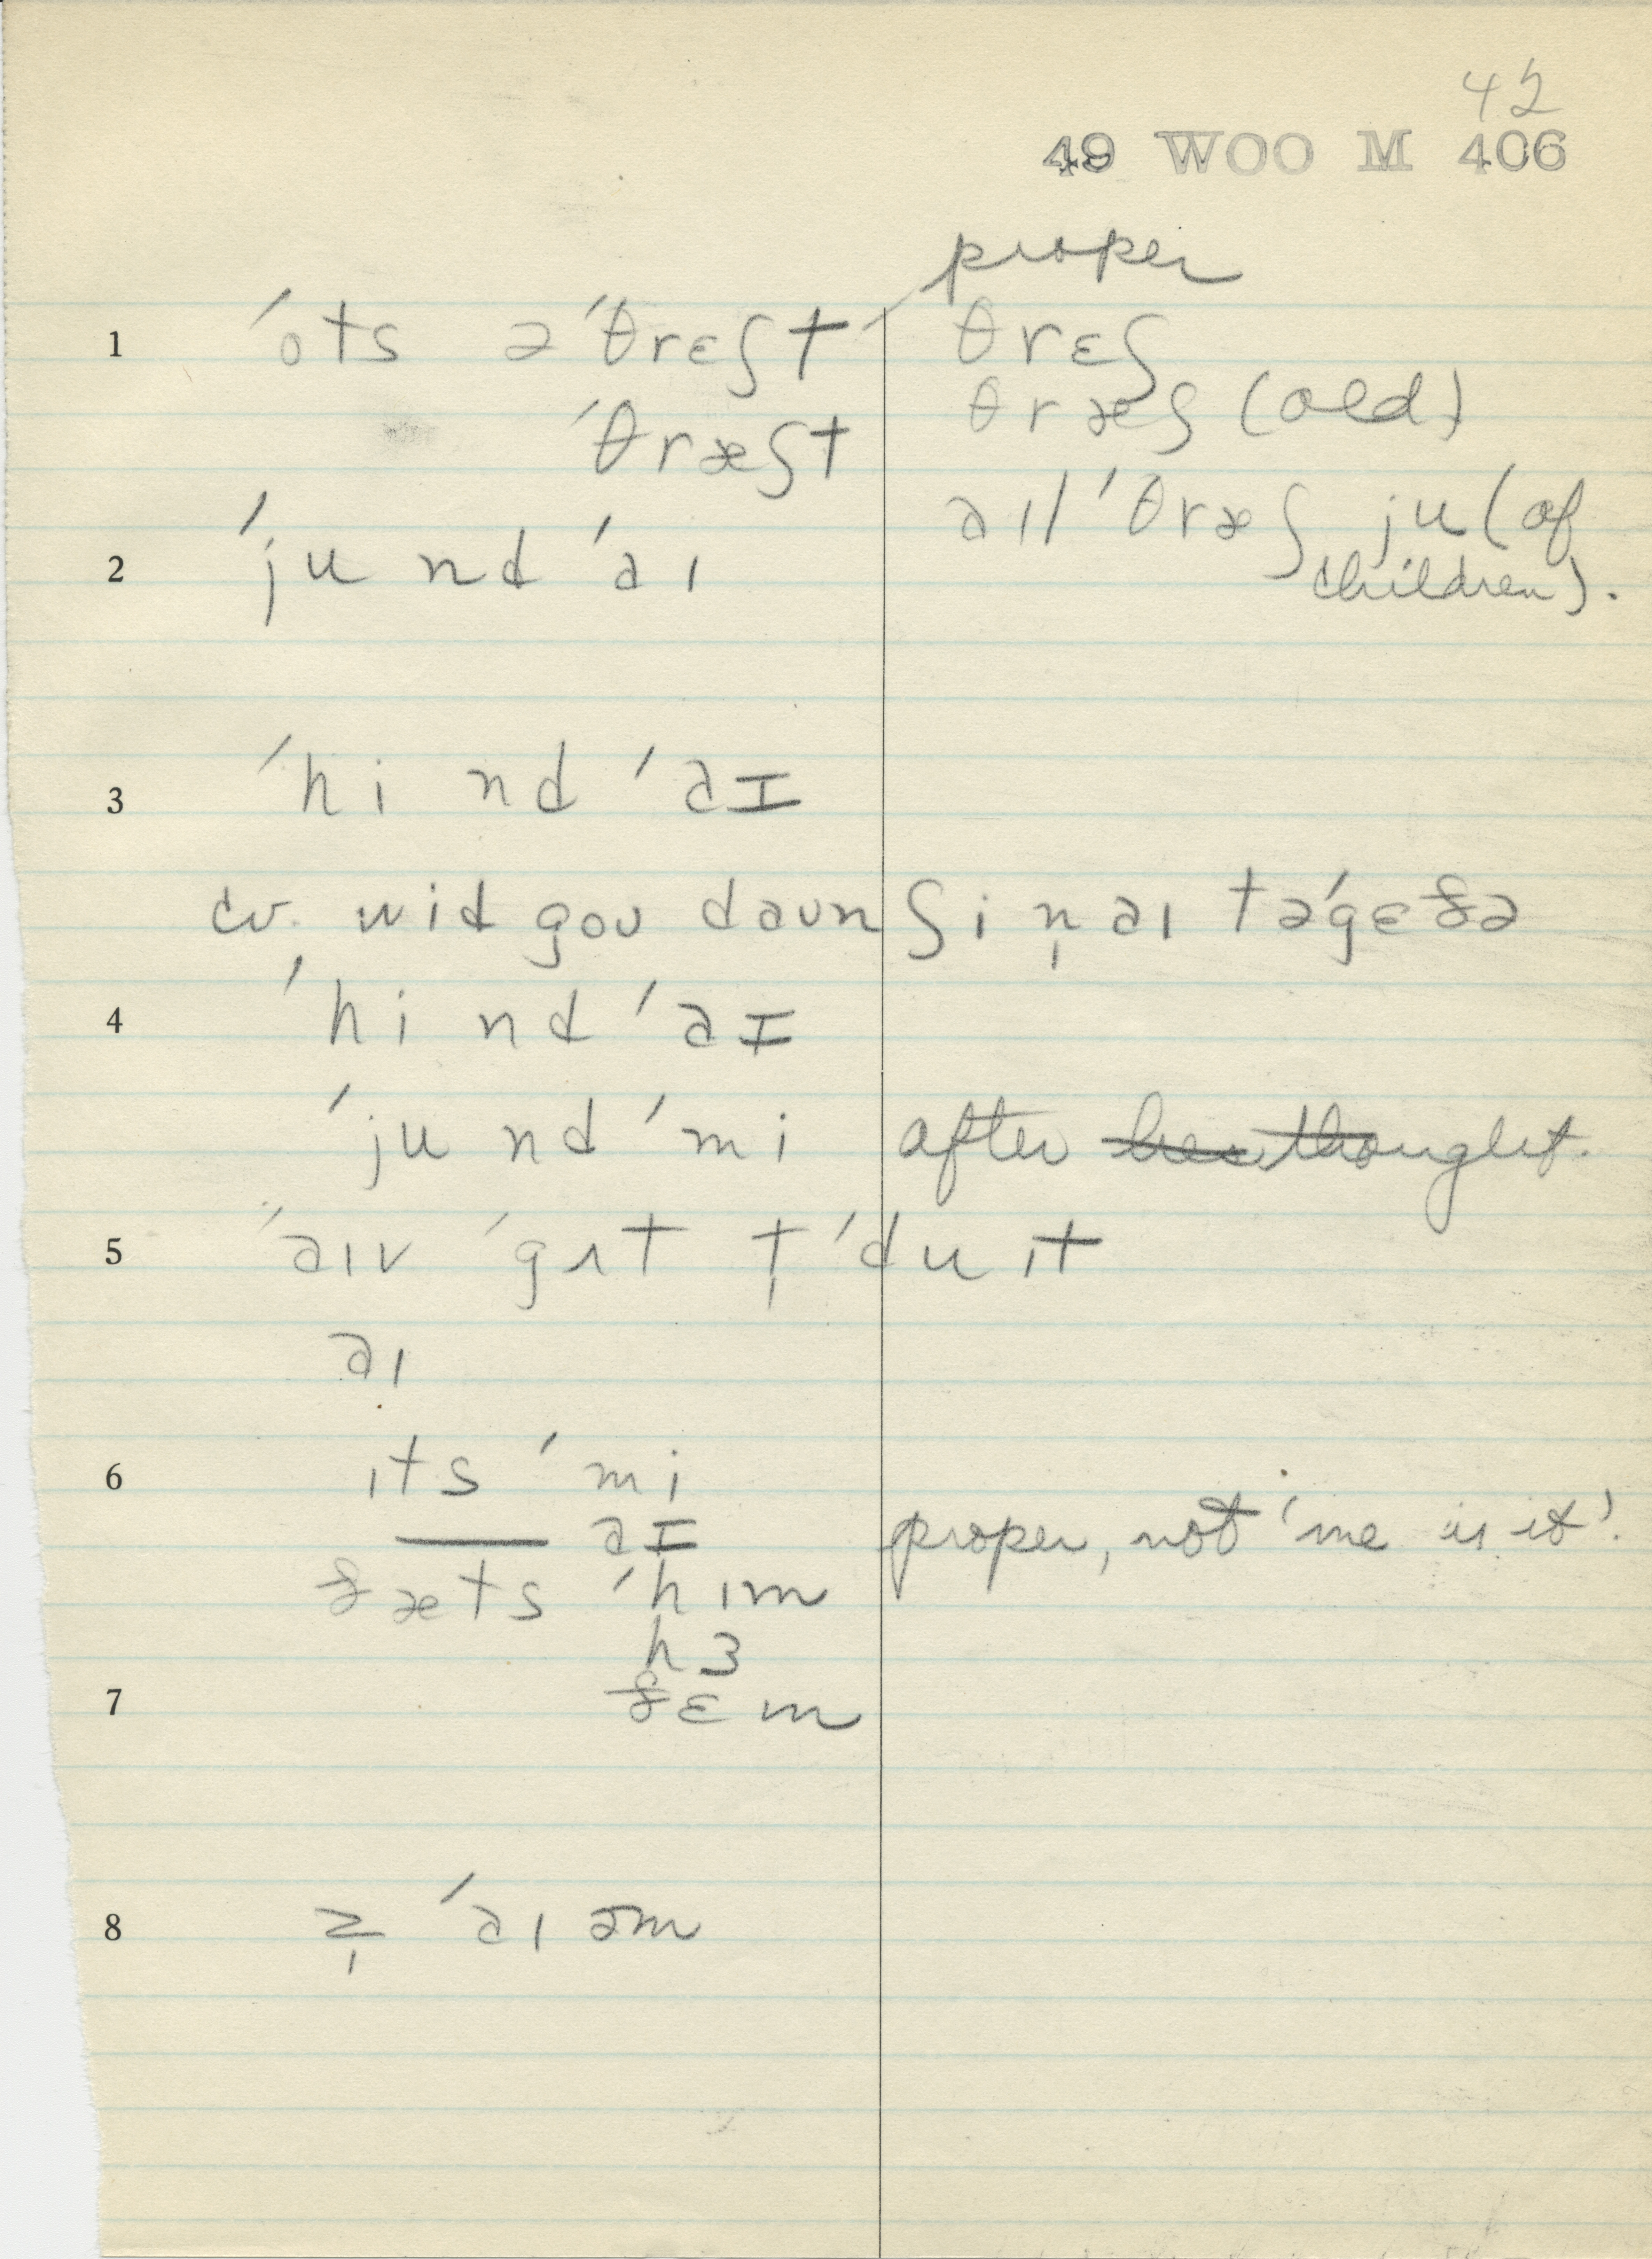 42
49 WOO M 406
proper
1 ˈots əˈθrɛʃt θrɛʃ
ˈθræʃt θræʃ (old)
aɪl ˈθræʃ ju (of
2 ˈju nd ˈaɪ children).
3 ˈhi nd ˈaɪ
cv. wid goʊ daʊn ʃi n̩ aɪ təˈgɛðə
4 ˈhi nd ˈaɪ
ˈju nd ˈmi after thought.
5 ˈaɪv ˈgɒt t̩ ˈdu ɪt
aɪ
6 ɪts ˈmi
— aɪ proper, not 'me is it'.
ðæts ˈhɪm
hɜ
7 ðɛm
8 z̩ ˈaɪ əm